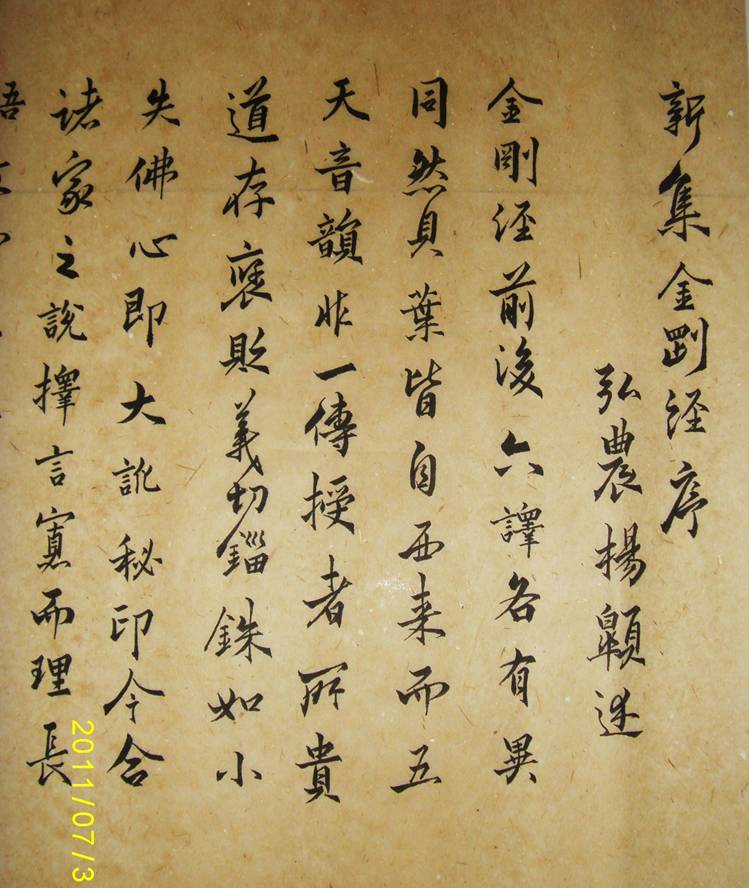 新集金剛經序
弘農楊顥述
金剛經前後六譯各有異
同然貝葉皆自西来而五
天音韻非一傳授者所貴
道存褒貶義切錙銖如小
失佛心即大訛秘印今合
諸家之說擇言寡而理長
2011/07/3